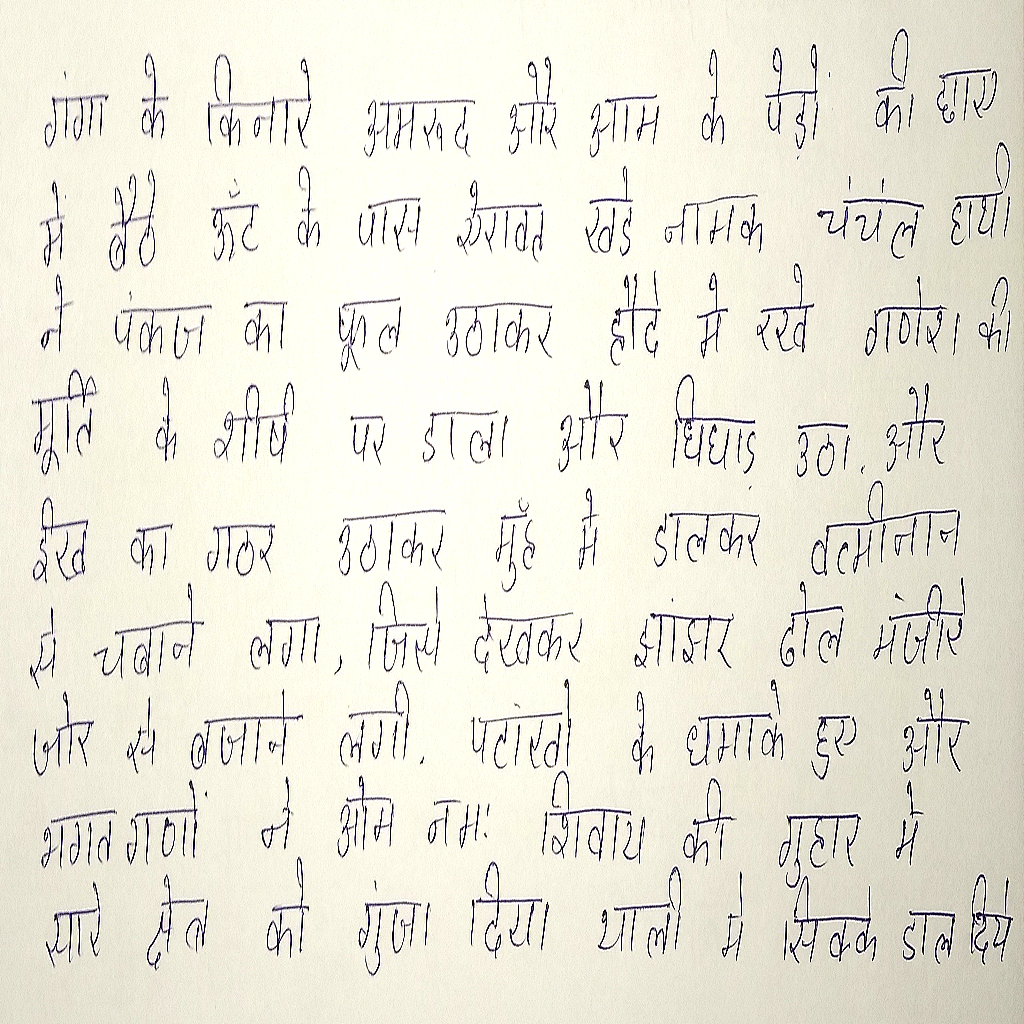 गंगा के किनारे अमरूद और आम के पेड़ों की छाए
में बैठे ऊँट के पास ऐरावत खडे नामक चंचंल हाथी
ने पंकज का फूल उठाकर हौदे मे रखे गणेश की
मूर्ति के शीर्ष पर डाला और घिघाड़ उठा. और
ईख का गठर उठाकर मुँह मे डालकर वत्मीनान
से चबाने लगा, जिसे देखकर झांझर ढोल मंजीरे
जोर से बजाने लगी. पटांखो के धमाके हुए और
भगत गणों ने ओम नमः शिवाय की गुहार मे
सारे क्षेत्र को गुंजा दिया थाली मे सिक्के डाल दिये